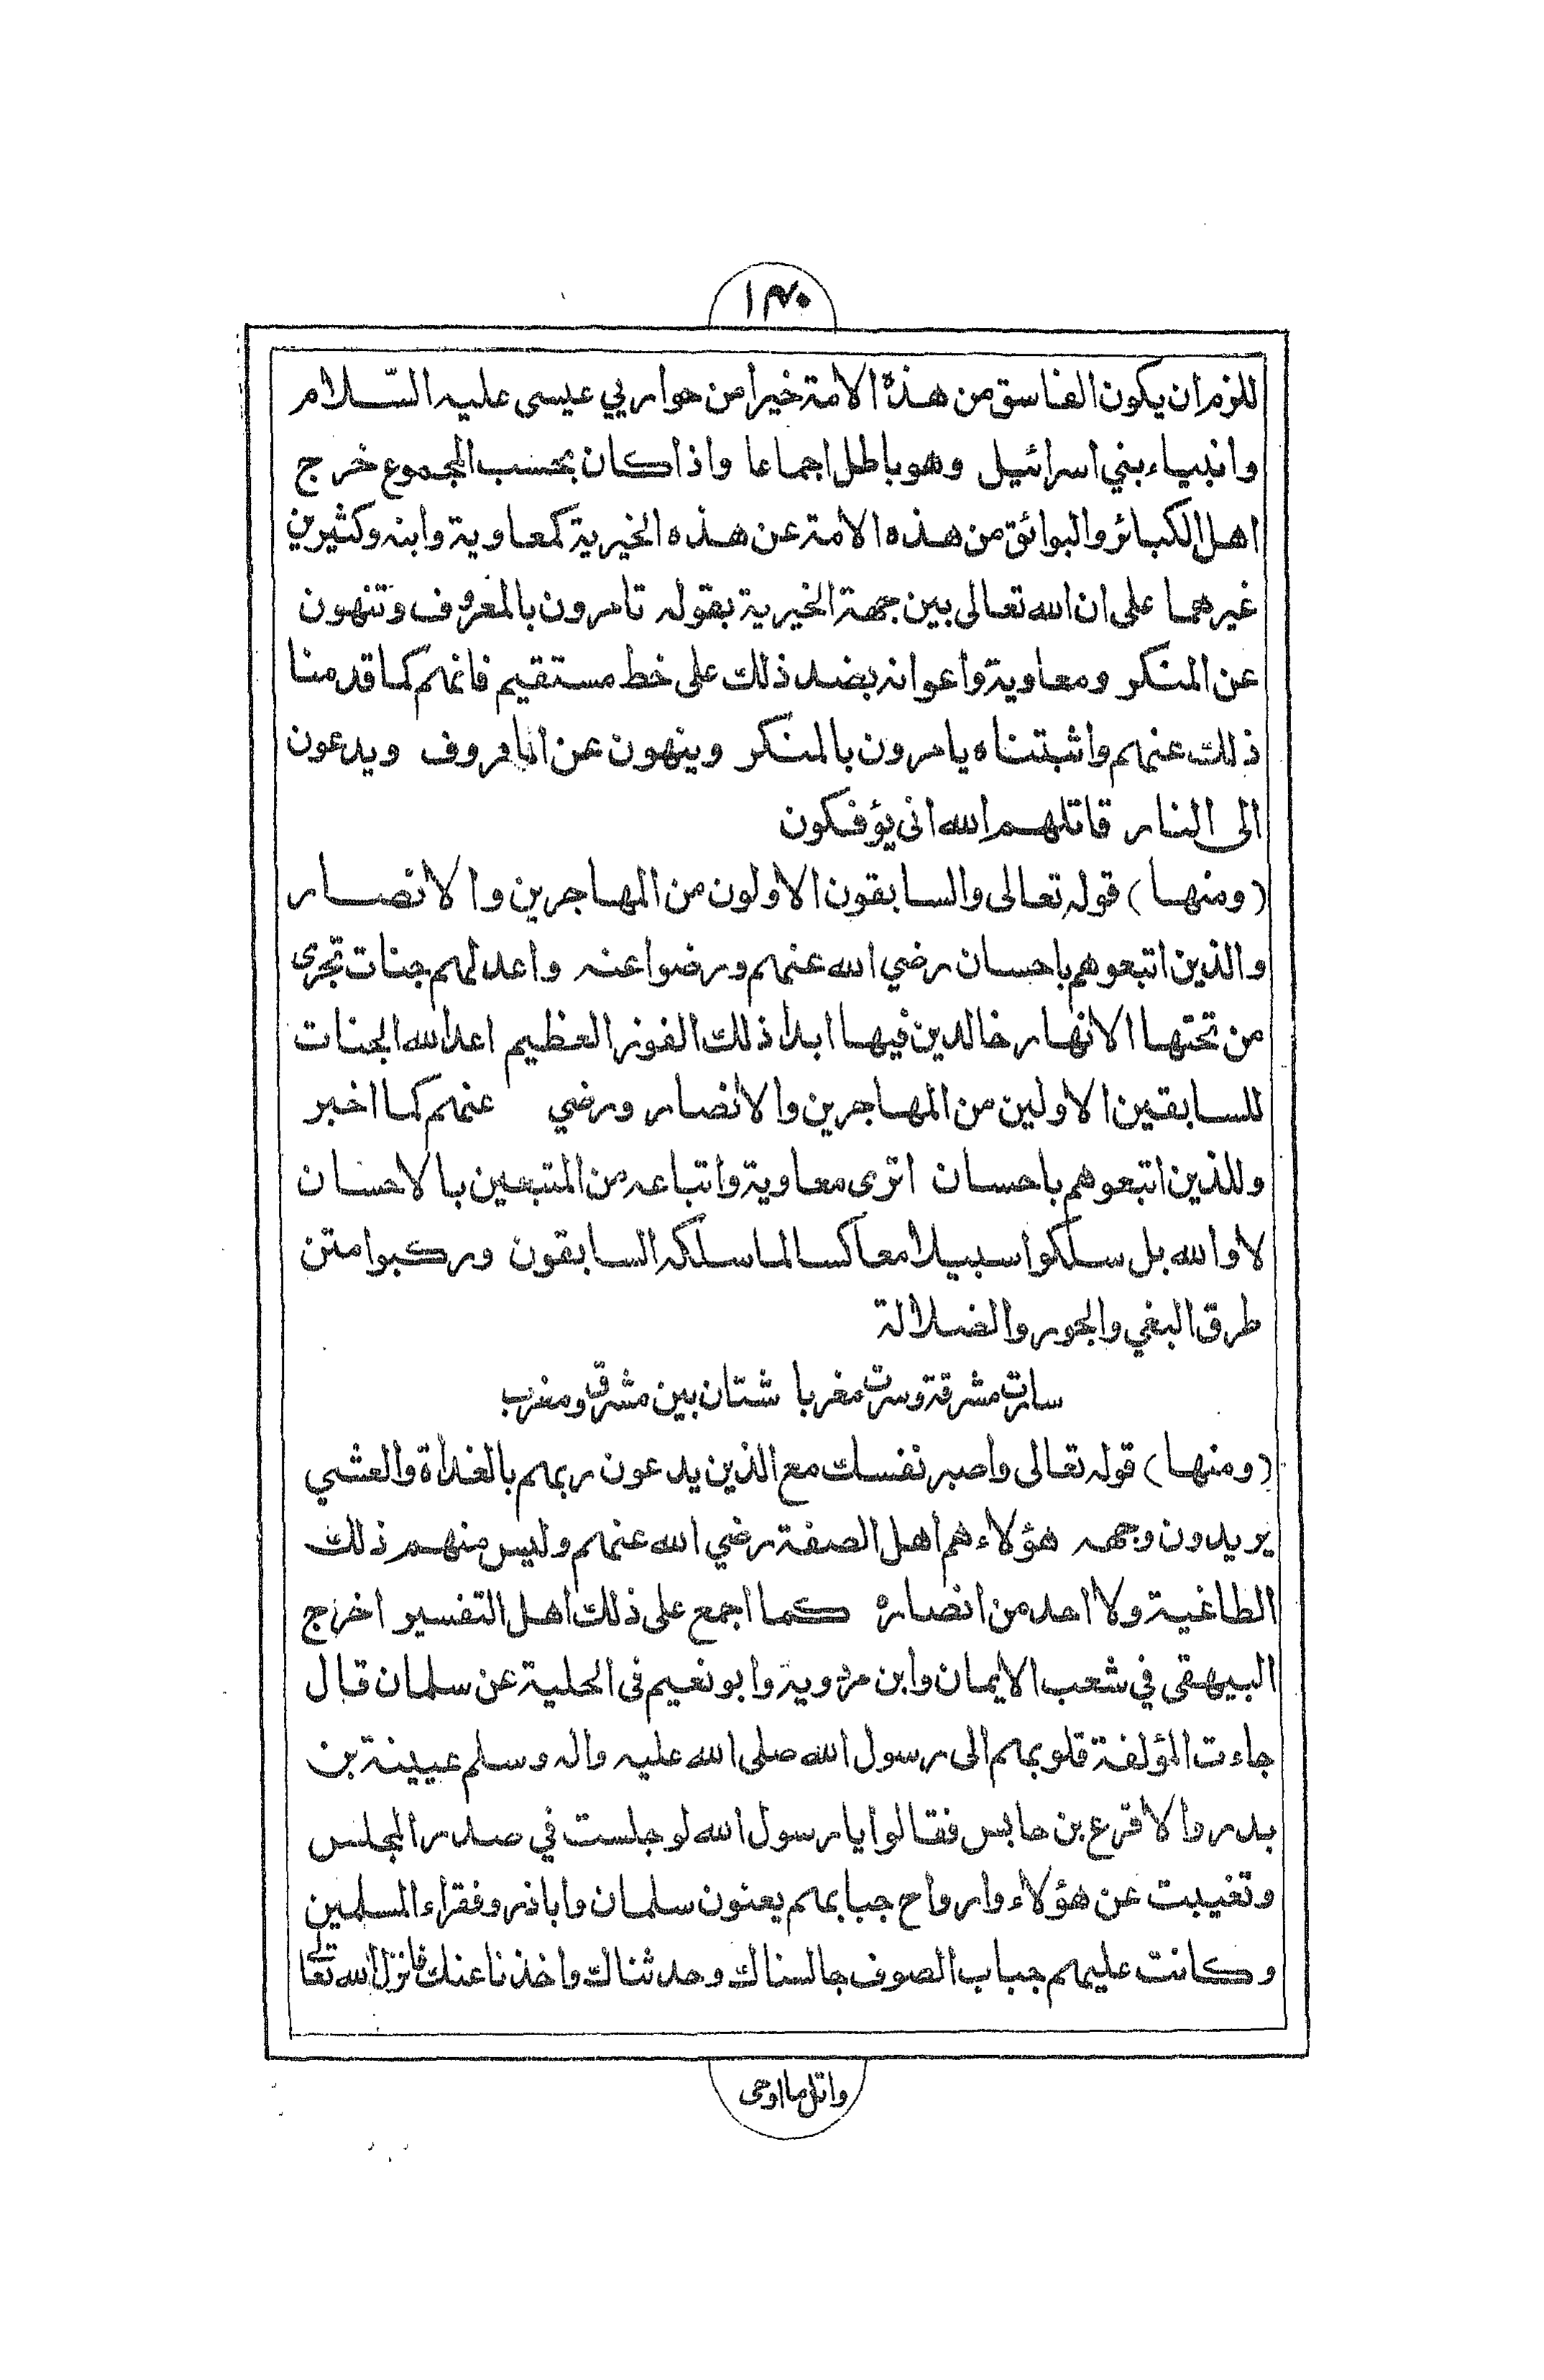 ١٣٠
للزم ان يكون الفاسق من هذه الامة خيرا من حواريي عيسى عليه السّلام
وانبياء بني اسرائيل وهو باطل اجماعا واذا كان بحسب المجموع خرج
اهل الكبائر والبوائق من هذه الامة عن هذه الخيرية كمعاوية وابنه وكثيرين
غيرهما على ان الله تعالى بين جهة الخيرية بقوله تامرون بالمعروف وتنهون
عن المنكر ومعاوية واعوانه بضد ذلك على خط مستقيم فانهم كما قدمنا
ذلك عنهم واثبتناه يامرون بالمنكر وينهون عن المعروف ويدعون
الى النار قاتلهم الله انى يؤفكون
(ومنها) قوله تعالى والسابقون الاولون من المهاجرين والانصار
والذين اتبعوهم باحسان رضي الله عنهم ورضوا عنه واعد لهم جنات تجرى
من تحتها الانهار خالدين فيها ابدا ذلك الفوز العظيم اعد الله الجنات
للسابقين الاولين من المهاجرين والانصار ورضي عنهم كما اخبر
وللذين اتبعوهم باحسان اترى معاوية واتباعه من المتبعين بالاحسان
لا والله بل سلكوا سبيلا معاكسا لما سلكه السابقون وركبوا متن
طرق البغي والجور والضلالة
سارت مشرقة وسرت مغربا شتان بين مشرق ومغرب
(ومنها) قوله تعالى واصبر نفسك مع الذين يدعون ربهم بالغداة والعشي
يريدون وجهه هؤلاء هم اهل الصفة رضي الله عنهم وليس منهم ذلك
الطاغية ولا احد من انصاره كما اجمع على ذلك اهل التفسير اخرج
البيهقى في شعب الايمان وابن مردويه وابو نعيم فى الحلية عن سلمان قال
جاءت المؤلفة قلوبهم الى رسول الله صلى الله عليه واله وسلم عيينة بن
بدر والاقرع بن حابس فقالوا يا رسول الله لو جلست في صدر المجلس
وتغيبت عن هؤلاء وارواح جبابهم يعنون سلمان واباذر وفقراء المسلمين
وكانت عليهم جباب الصوف جالسناك وحدثناك واخذنا عنك فانزل الله تعالى
واتل ما اوحى